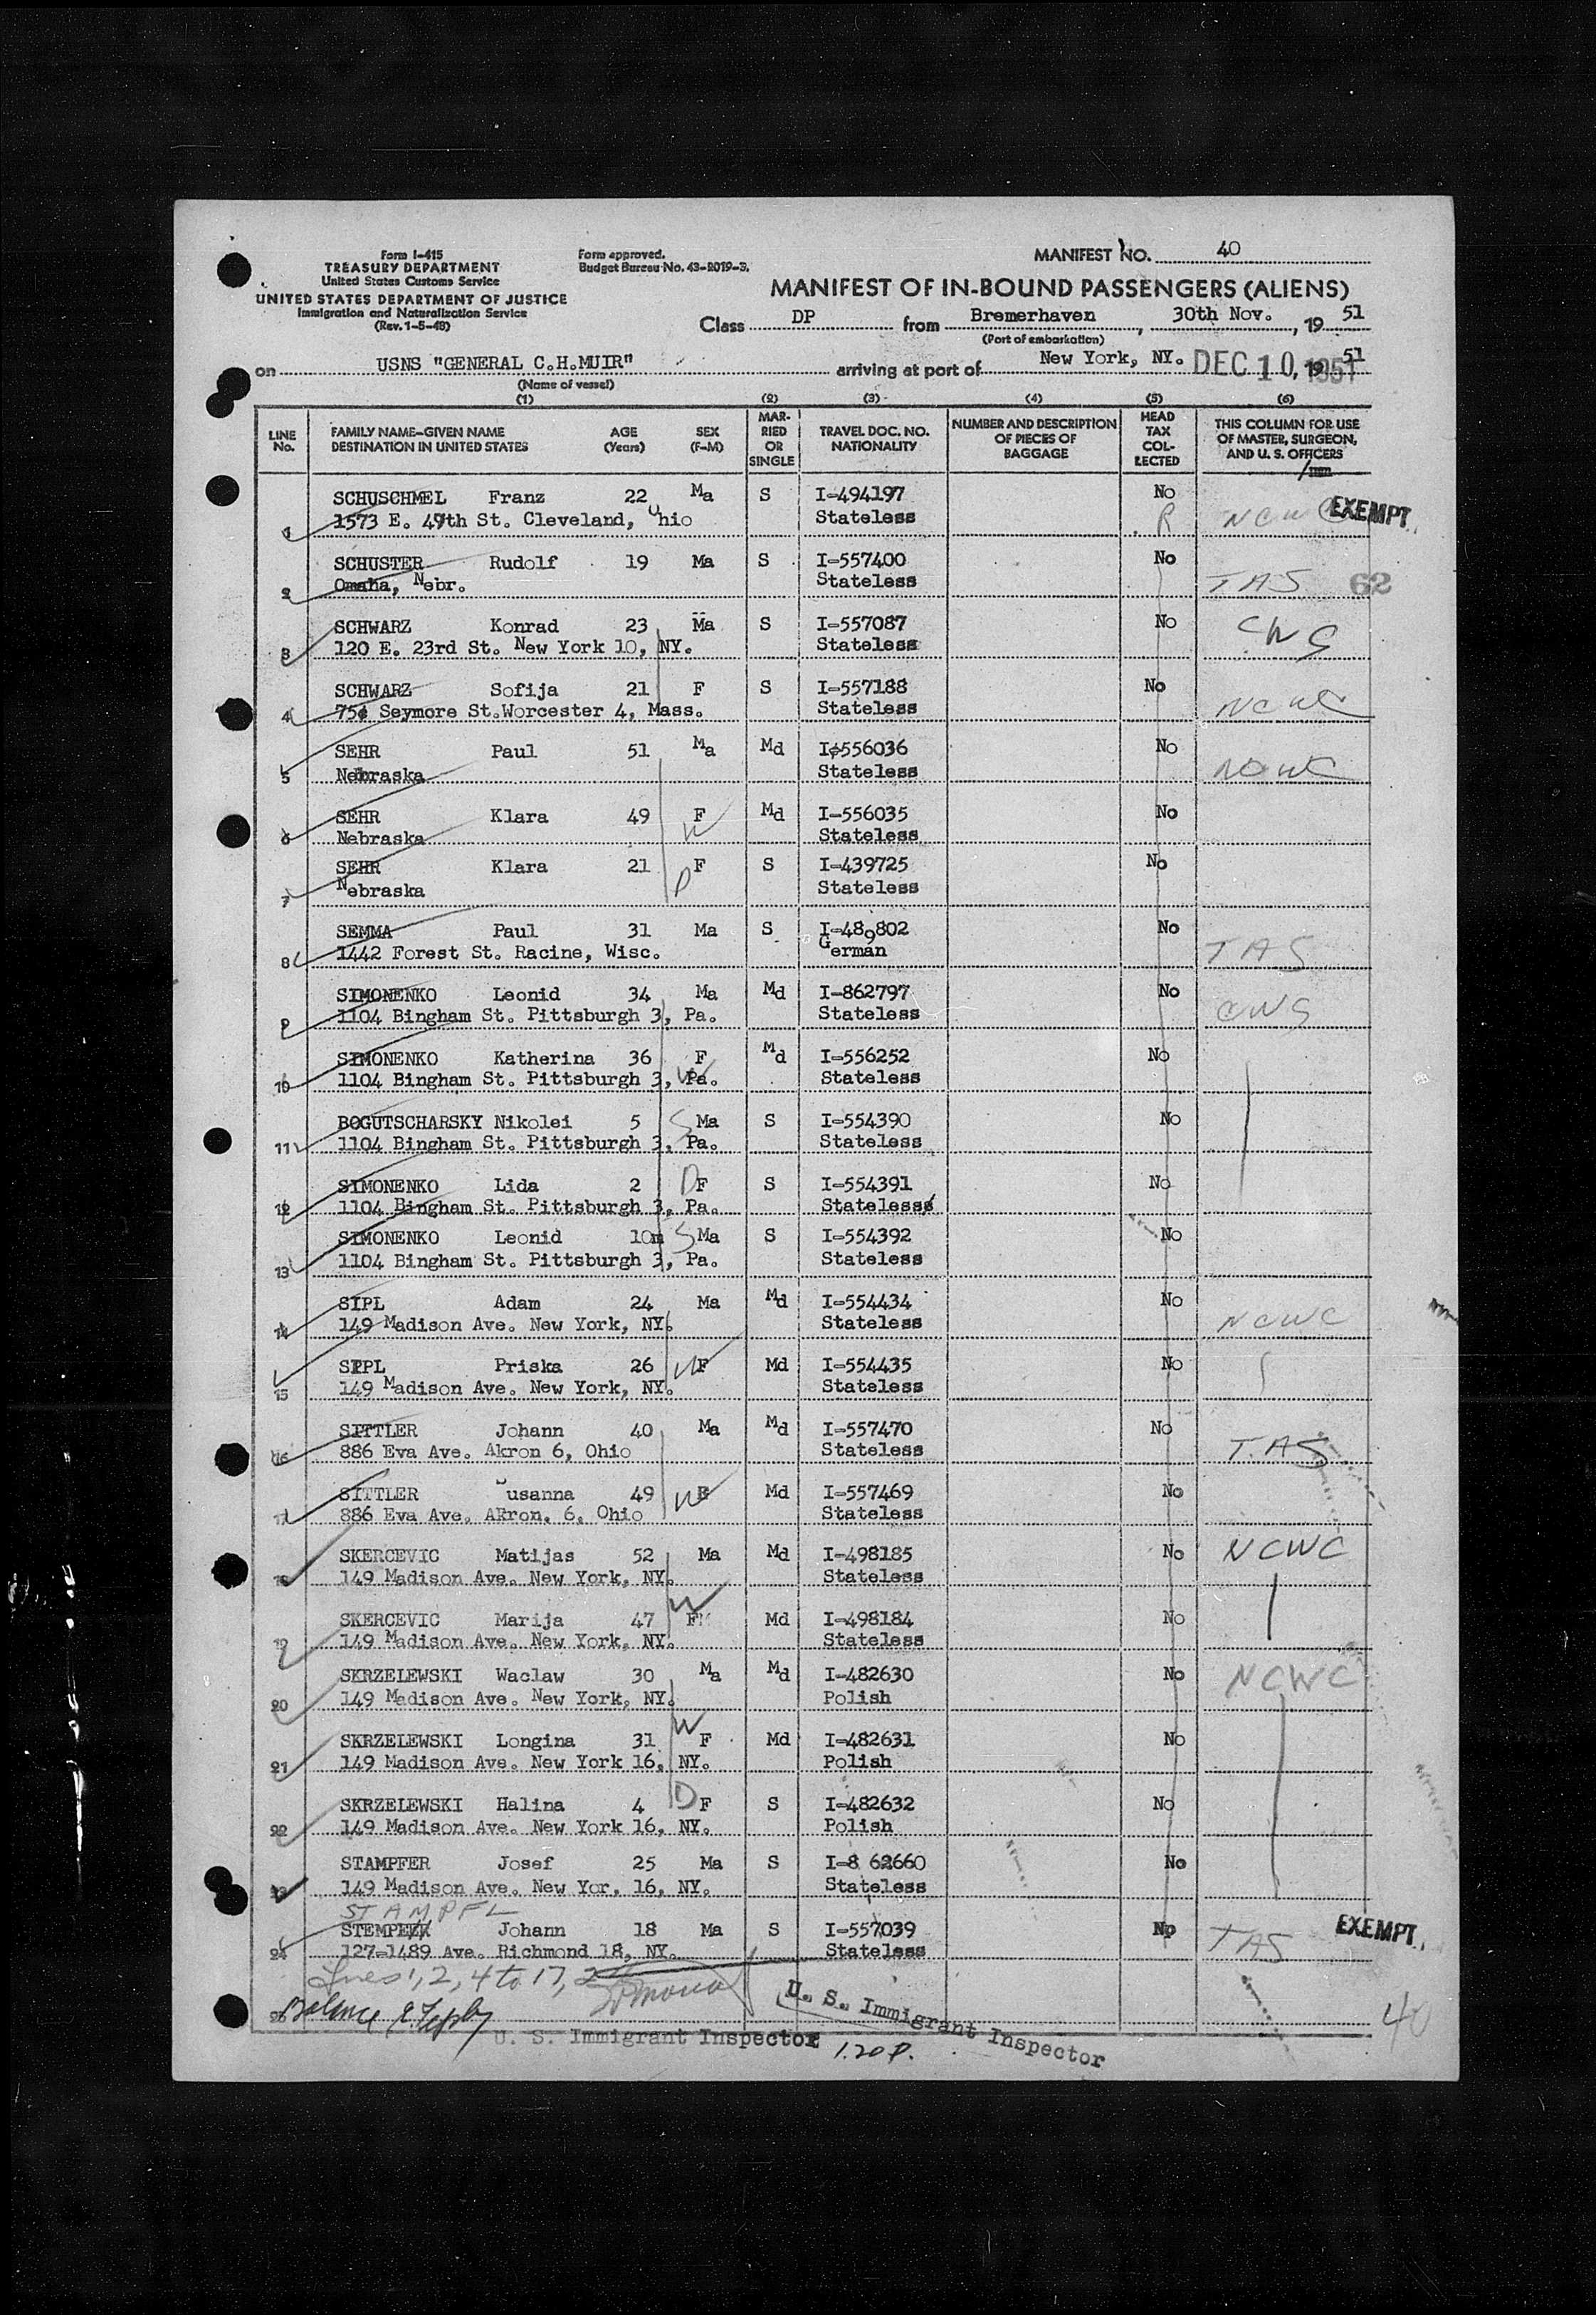 Form I-415
TREASURY DEPARTMENT
United States Customs Service
UNITED STATES DEPARTMENT OF JUSTICE
Immigration and Naturalization Service
(Rev. 1-5-48)
Form approved.
Budget Bureau No. 43-R019-3.
MANIFEST NO. 40
MANIFEST OF IN-BOUND PASSENGERS (ALIENS)
Class DP from Bremerhaven, 30th Nov., 19 51
(Port of embarkation)
on USNS "GENERAL C.H.MUIR" arriving at port of New York, NY. DEC 10, 1951 19 51
(Name of vessel)
(1) (2) (3) (4) (5) (6)
LINE No. FAMILY NAME-GIVEN NAME DESTINATION IN UNITED STATES AGE (Years) SEX (F-M) MAR-RIED OR SINGLE TRAVEL DOC. NO. NATIONALITY NUMBER AND DESCRIPTION OF PIECES OF BAGGAGE HEAD TAX COL-LECTED THIS COLUMN FOR USE OF MASTER, SURGEON, AND U. S. OFFICERS
1 SCHUSCHMEL Franz 22 Ma S I-494197 No
1573 E. 47th St. Cleveland, Ohio Stateless R NCWC EXEMPT
2 SCHUSTER Rudolf 19 Ma S I-557400 No
Omaha, Nebr. Stateless TAS 62
3 SCHWARZ Konrad 23 Ma S I-557087 No
120 E. 23rd St. New York 10, NY. Stateless CWS
4 SCHWARZ Sofija 21 F S I-557188 No
75¢ Seymore St.Worcester 4, Mass. Stateless NCWC
5 SEHR Paul 51 Ma Md I-556036 No
Nebraska Stateless NCWC
6 SEHR Klara 49 F Md I-556035 No
Nebraska W Stateless
7 SEHR Klara 21 F S I-439725 No
Nebraska D Stateless
8 SEMMA Paul 31 Ma S I-489802 No
1442 Forest St. Racine, Wisc. German TAS
9 SIMONENKO Leonid 34 Ma Md I-862797 No
1104 Bingham St. Pittsburgh 3, Pa. Stateless CWS
10 SIMONENKO Katherina 36 F Md I-556252 No
1104 Bingham St. Pittsburgh 3, W Pa. Stateless
11 BOGUTSCHARSKY Nikolei 5 S Ma S I-554390 No
1104 Bingham St. Pittsburgh 3, Pa. Stateless
12 SIMONENKO Lida 2 D F S I-554391 No
1104 Bingham St. Pittsburgh 3, Pa. Stateless
13 SIMONENKO Leonid 10m S Ma S I-554392 No
1104 Bingham St. Pittsburgh 3, Pa. Stateless
14 SIPL Adam 24 Ma Md I-554434 No
149 Madison Ave. New York, NY. Stateless NCWC
15 SIPL Priska 26 W F Md I-554435 No
149 Madison Ave. New York, NY. Stateless
16 SITTLER Johann 40 Ma Md I-557470 No
886 Eva Ave. Akron 6, Ohio Stateless T.AS
17 SITTLER Susanna 49 W F Md I-557469 No
886 Eva Ave. Akron. 6, Ohio Stateless
18 SKERCEVIC Matijas 52 Ma Md I-498185 No NCWC
149 Madison Ave. New York, NY. Stateless
19 SKERCEVIC Marija 47 W F Md I-498184 No
149 Madison Ave. New York, NY. Stateless
20 SKRZELEWSKI Waclaw 30 Ma Md I-482630 No NCWC
149 Madison Ave. New York, NY. Polish
21 SKRZELEWSKI Longina 31 W F Md I-482631 No
149 Madison Ave. New York 16, NY. Polish
22 SKRZELEWSKI Halina 4 D F S I-482632 No
149 Madison Ave. New York 16, NY. Polish
23 STAMPFER Josef 25 Ma S I-8 62660 No
149 Madison Ave. New Yor. 16, NY. Stateless
STAMPFL
24 Johann 18 Ma S I-557039 No TAS EXEMPT
127-1489 Ave. Richmond 18, NY. Stateless
Lines 1, 2, 4 to 17,
25 Balance
U. S. Immigrant Inspector
U. S. Immigrant Inspector
1.20 P.
40